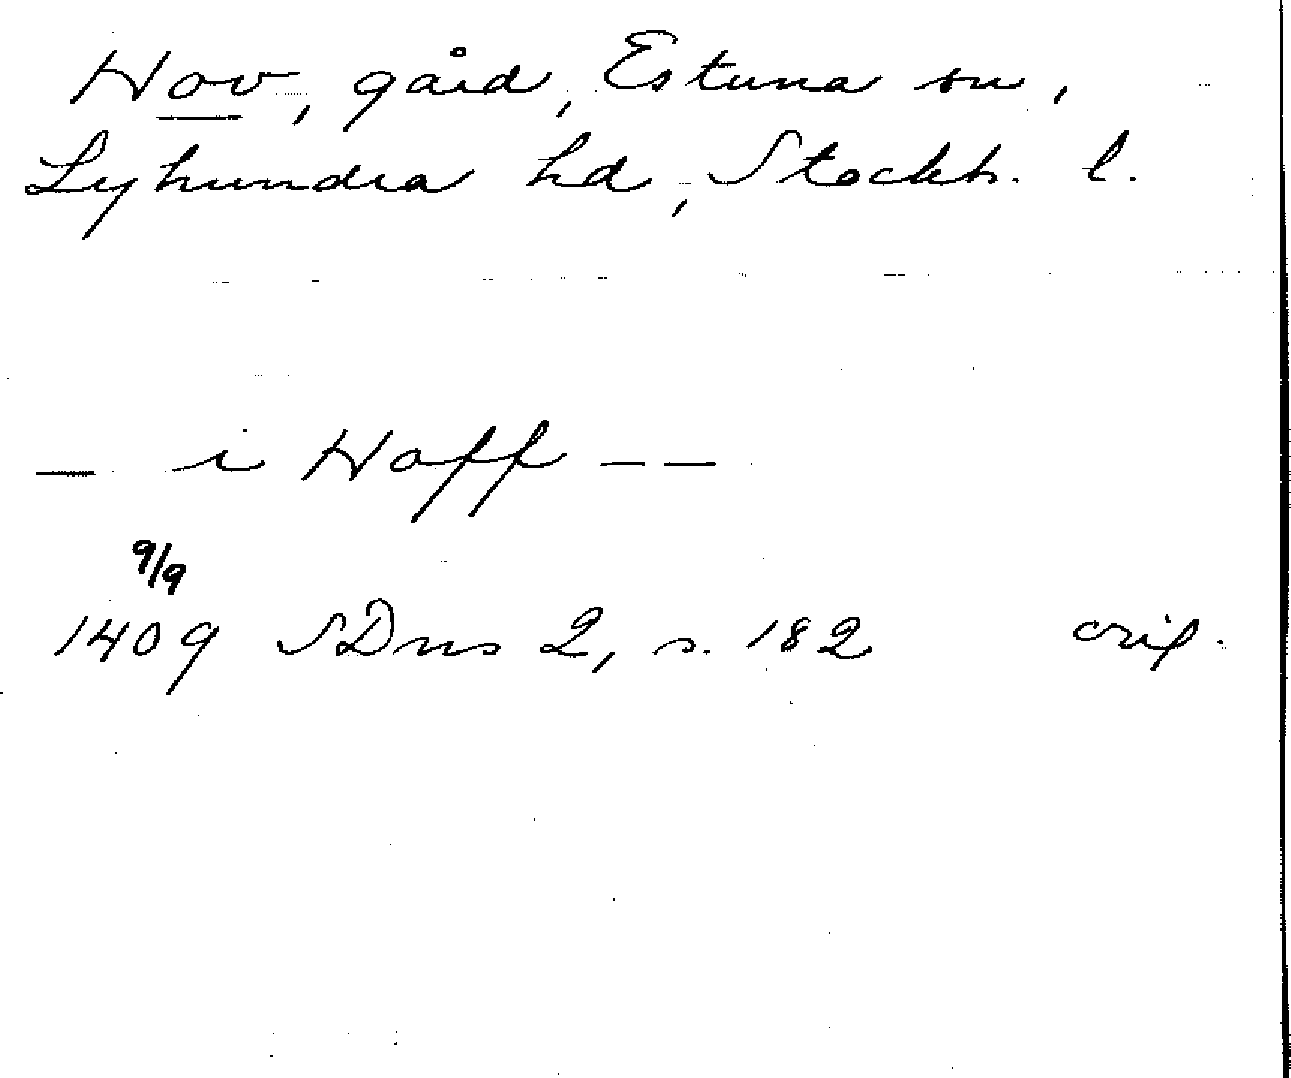 Hov, gård, Estuna sn,
Lyhundra hd, Stockh. l.
— i Hoff — —
9/9
1409 SDns 2, s. 182 orig.